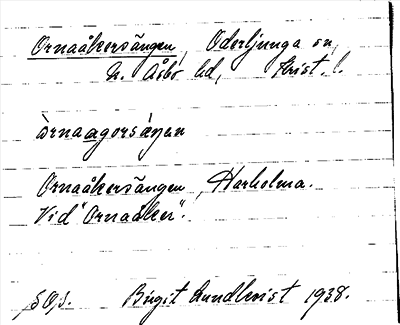 Ornaåkersängen, Oderljunga sn,
N. Åsbo hd, Krist. l.
òrnaagorsáŋen
Ornaåkersängen, Harholma.
Vid "Ornaåker".
Birgit Lundkvist 1938.